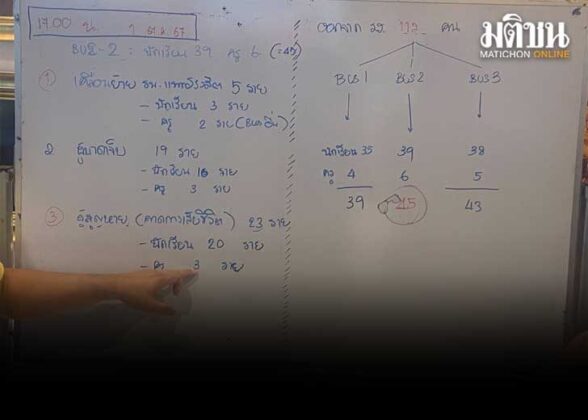 17.00 น. 1 ต.ค. 67
BUS-2 : นักเรียน 39 ครู 6 (=45)
① เคลื่อนย้าย รพ. 5 ราย
- นักเรียน 3 ราย
- ครู 2 ราย (BUS อื่น)
2 ผู้บาดเจ็บ 19 ราย
- นักเรียน 16 ราย
- ครู 3 ราย
③ ผู้สูญหาย (คาดการเสียชีวิต) 23 ราย
- นักเรียน 20 ราย
- ครู 3 ราย
ออกจาก คน
BUS1 BUS2 BUS3
นักเรียน 35 39 38
ครู 4 6 5
39 45 43
มติชน
MATICHON ONLINE